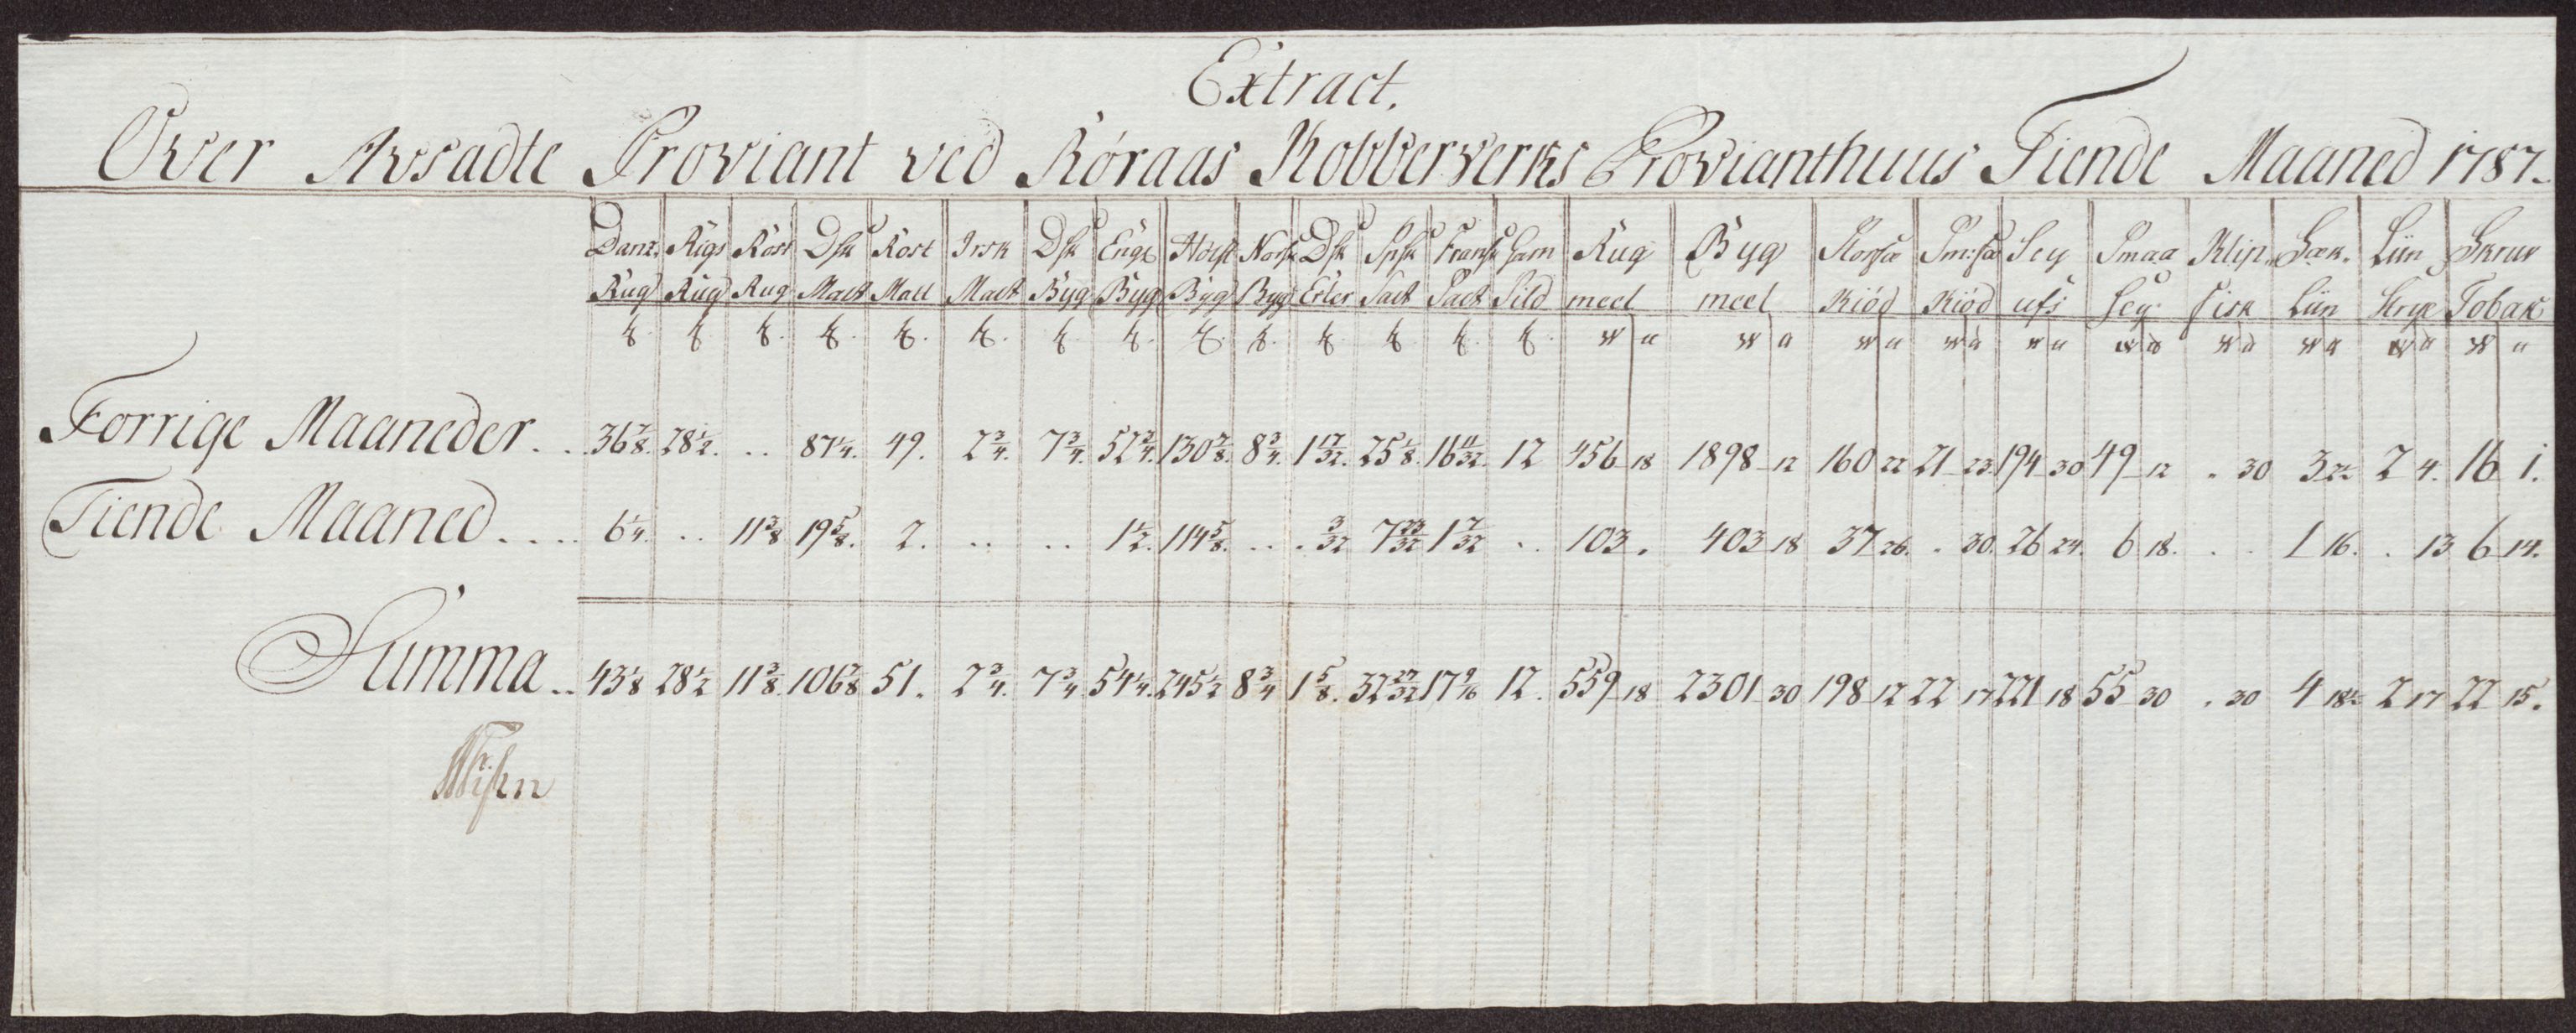 Extract.
Over Avsadte Proviant ved Röraas Kobberverks Provianthuus Tiende Maaned 1787.
Danz. Rigs Rost Dsk Rost Irsk Dsk Engs Holst Norsk Dsk Spsk Fransk Ham Rug Byg Storfæ Sm:fæ Sey Smaa Klip Hæk. Liin Skruv
Rug Rug Rug Malt Malt Malt Byg Byg Byg Byg Erter Salt Salt Sild meel meel Kiöd Kiöd ufs Sey fisk Liin Stryе Tobak
Forrige Maaneder. . . 36 7/8. 28 1/2. .. 87 1/4. 49. 2 3/4. 7 3/4. 52 3/4. 130 7/8. 8 3/4. 1 17/32. 25 1/8. 16 11/32. 12 456 18 1898 12 160 22 21 23 194 30 49 12 . 30 3 2 1/2 2 4. 16 1.
Tiende Maaned. . . . 6 1/4. .. 11 3/8 19 5/8. 2. .. .. 1 1/2. 114 5/8. .. . 3/32 7 23/32 1 7/32 .. 103 . 403 18 37 26. . 30. 26 24. 6 18. . . 1 16. . 13 6 14.
Summa .. 43 1/8 28 1/2 11 3/8. 106 7/8 51. 2 3/4. 7 3/4 54 1/4. 245 1/2 8 3/4 1 5/8. 32 27/32 17 9/16 12. 559 18 2301 30 198 12 22 17 221 18 55 30 . 30 4 18 1/2 2 17 22 15.